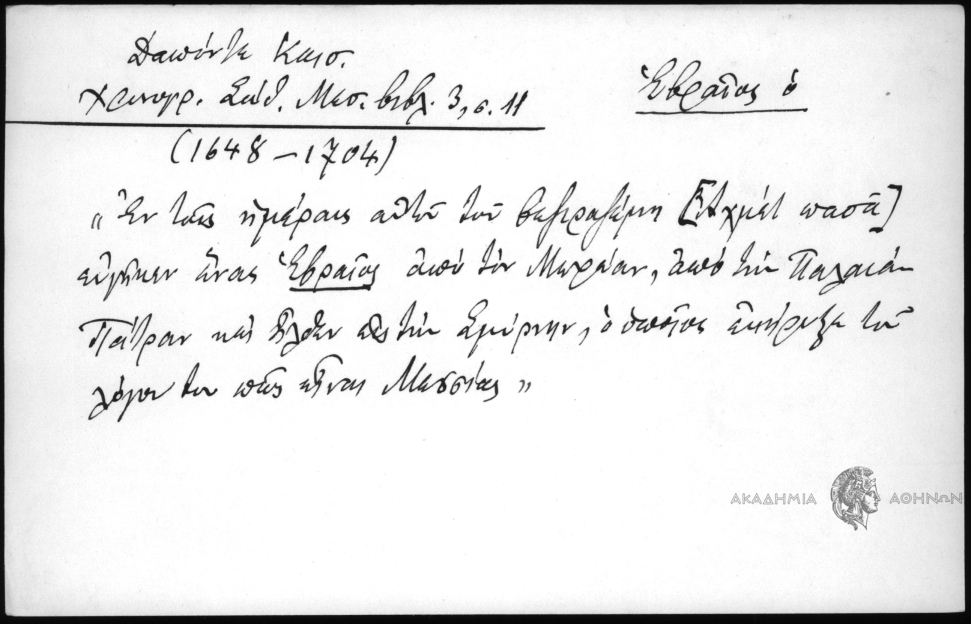 Δαπόντε Καισ.
Χρονογρ. Σάθ. Μεσ. βιβλ. 3, σ. 11
Ἑβραῖος ὁ
(1648 – 1704)
„ Ἐν ταῖς ἡμέραις αὐτοῦ τοῦ βεζυραζέμη [Ἀχμὲτ πασᾶ]
εὐγῆκεν ἕνας Ἑβραῖος ἀπὸ τὸν Μωρέαν, ἀπὸ τὴν Παλαιὰν
Πάτραν καὶ ἦλθεν εἰς τὴν Σμύρνην, ὁ ὁποῖος ἐκήρυξε τοῦ
λόγου του πῶς εἶναι Μεσσίας „
ΑΚΑΔΗΜΙΑ ΑΘΗΝΩΝ